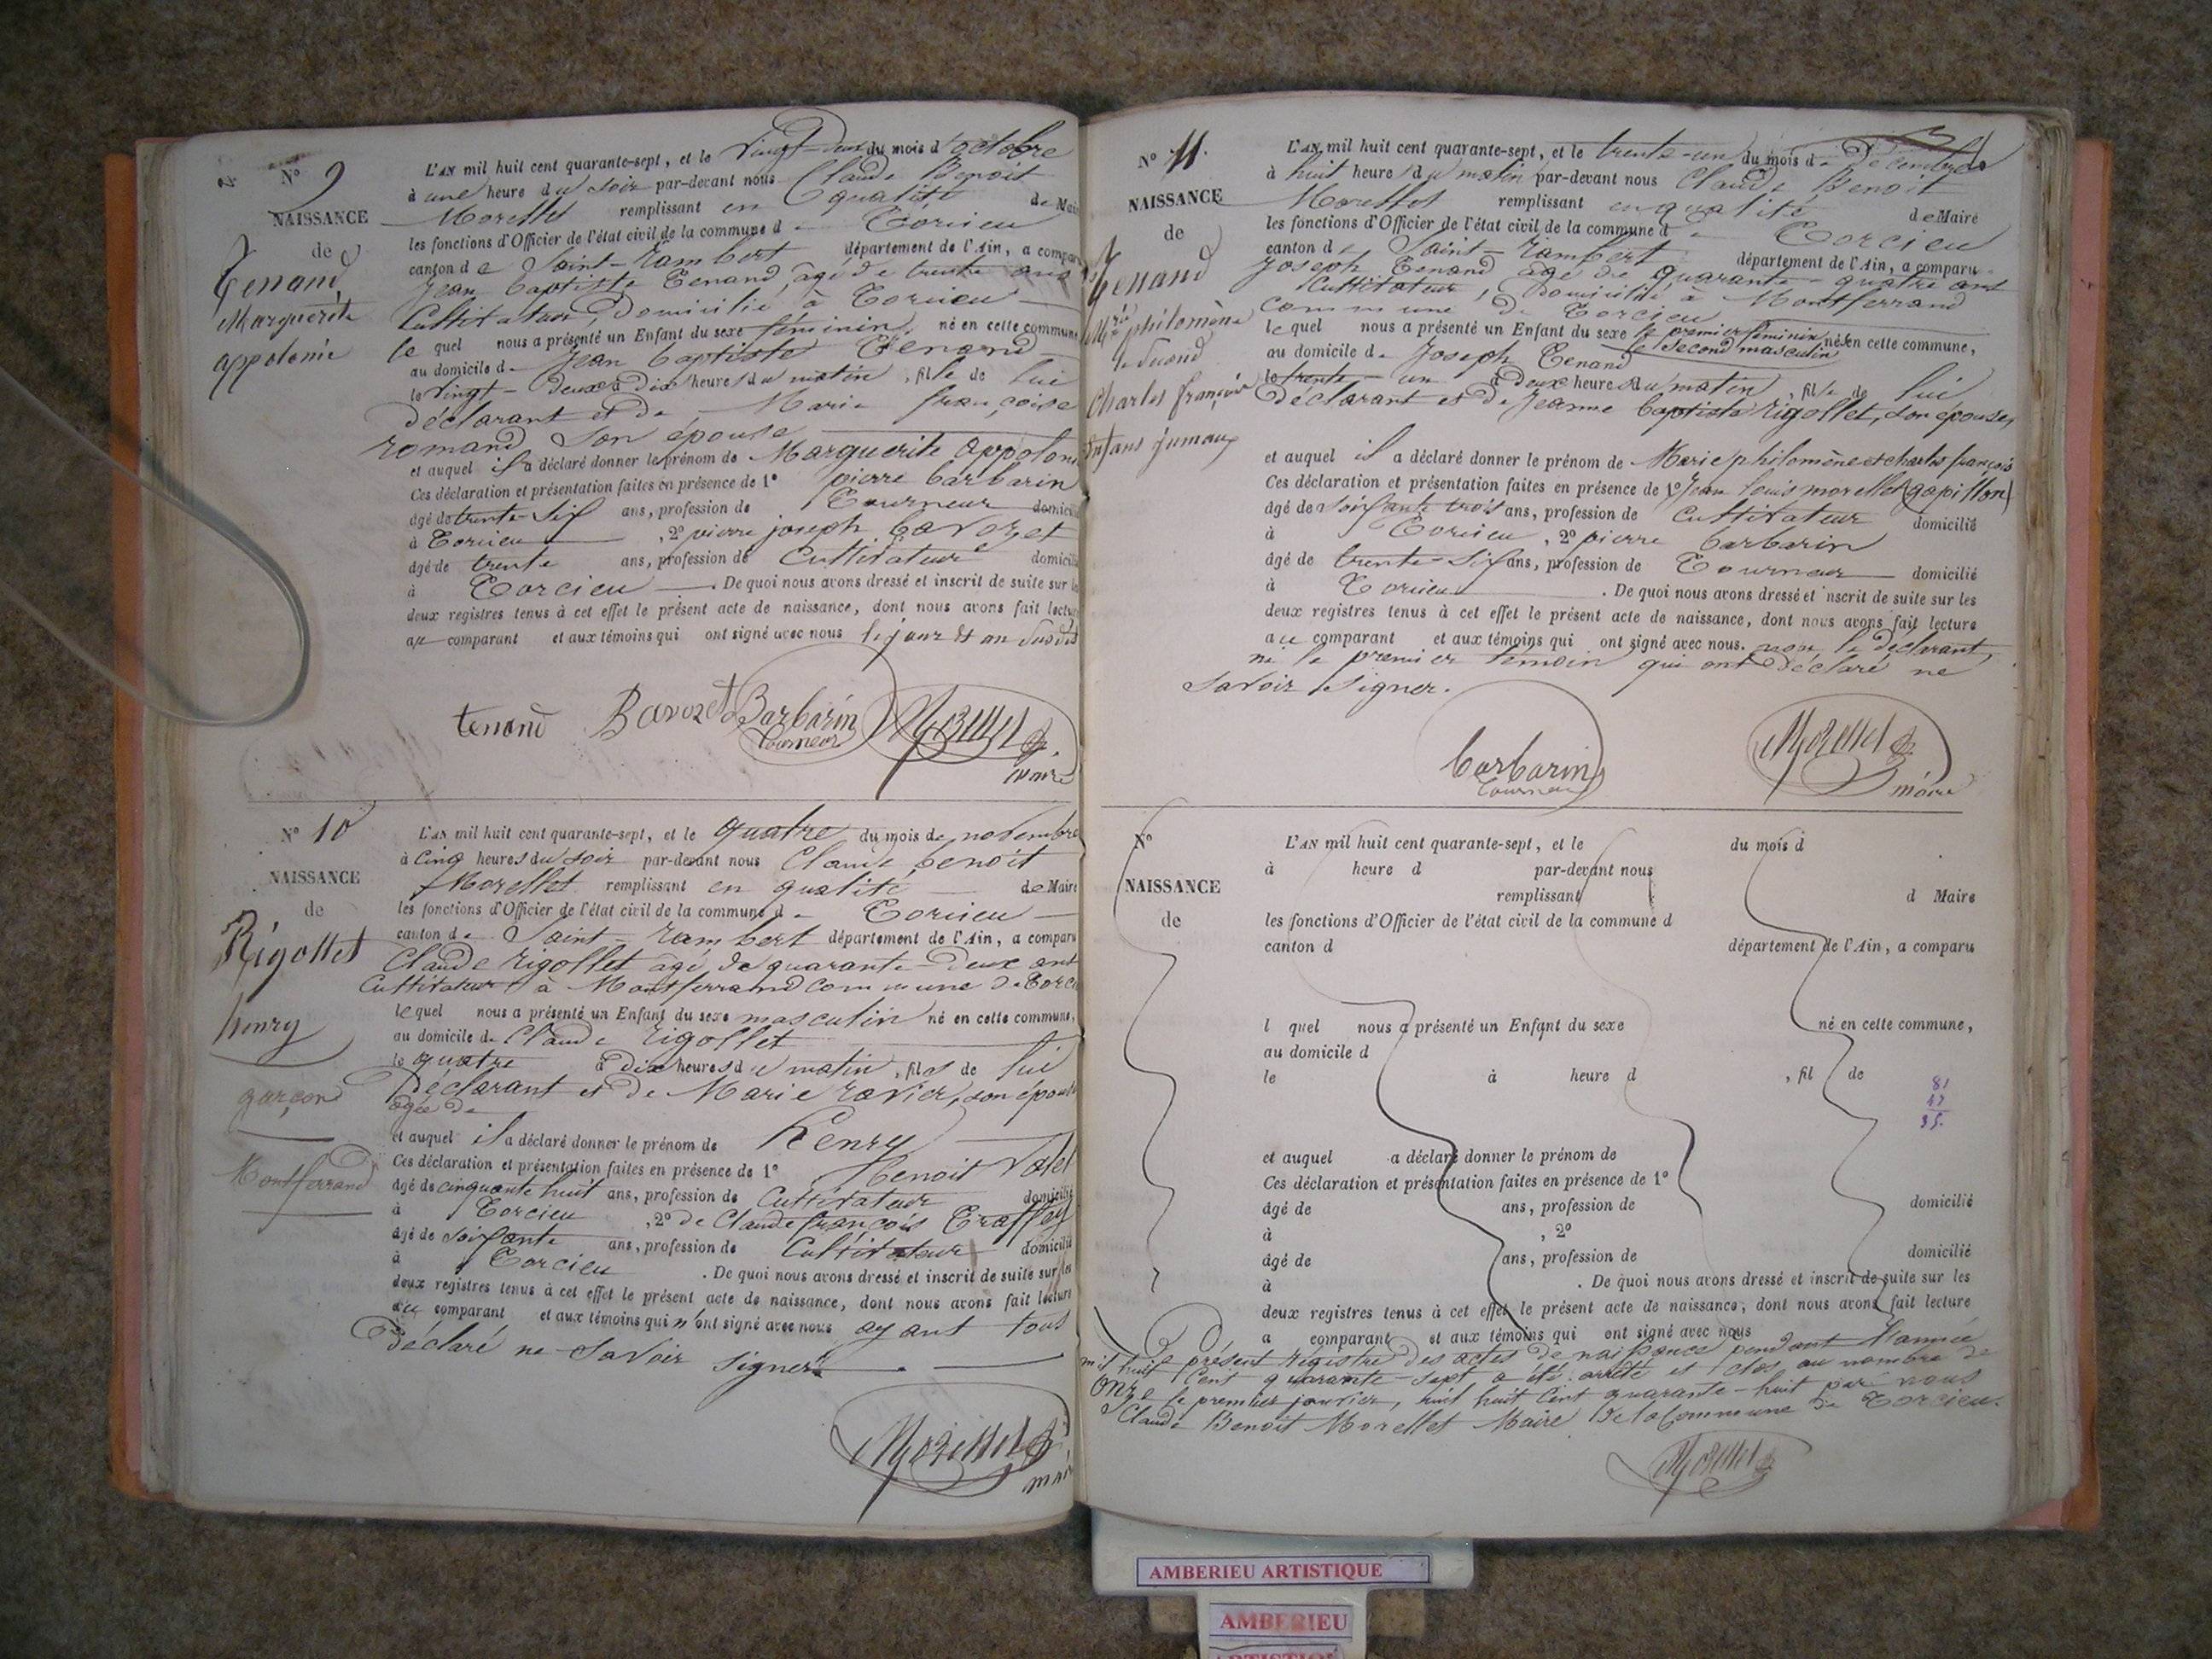 N° 9
NAISSANCE
de
Tenand
Marguerite
appolonie
L'AN mil huit cent quarante-sept, et le vingt-deux du mois d'octobre
à une heure du soir par-devant nous Claude Benoit
Morellet remplissant en qualité de Mai
les fonctions d'Officier de l'état civil de la commune de Torcieu
canton de Saint-rambert département de l'Ain, a comparu
Jean baptiste Tenand, âgé de trente ans
Cultivateur, Domicilié à Torcieu
le quel nous a présenté un Enfant du sexe féminin, né en cette commune
au domicile de Jean baptiste Tenand
le vingt-deux à dix heures du matin, fille de lui
déclarant et de Marie françoise
romand son épouse
et auquel il a déclaré donner le prénom de Marguerite appoloni
Ces déclaration et présentation faites en présence de 1° pierre barbarin
âgé de trente-six ans, profession de Tourneur domicil
à Torcieu, 2° pierre joseph bavozet
âgé de trente ans, profession de Cultivateur domicili
à Torcieu. De quoi nous avons dressé et inscrit de suite sur les
deux registres tenus à cet effet le présent acte de naissance, dont nous avons fait lecture
au comparant et aux témoins qui ont signé avec nous les jour et an susdit
tenand Bavozet Barbarin Morellet
tourneur maire
N° 10
NAISSANCE
de
Rigollet
henry
garçon
Montferrand
L'AN mil huit cent quarante-sept, et le quatre du mois de novembre
à cinq heures du soir par-devant nous Claude benoit
Morellet remplissant en qualité de Maire
les fonctions d'Officier de l'état civil de la commune de Torcieu
canton de Saint-rambert département de l'Ain, a comparu
Claude rigollet âgé de quarante-deux ans
Cultivateur à Montferrand commune de Torci
lequel nous a présenté un Enfant du sexe masculin né en cette commune,
au domicile de Claude rigollet
le quatre à dix heures du matin, fils de lui
Déclarant et de Marie ravier, son épouse
âgée de
et auquel il a déclaré donner le prénom de henry
Ces déclaration et présentation faites en présence de 1° benoit
âgé de cinquante huit ans, profession de Cultivateur domicilié
à Torcieu, 2° de Claude françois
âgé de soixante ans, profession de Cultivateur domicilié
à Torcieu. De quoi nous avons dressé et inscrit de suite sur les
deux registres tenus à cet effet le présent acte de naissance, dont nous avons fait lecture
au comparant et aux témoins qui n'ont signé avec nous ayant tous
déclaré ne savoir signer.
Morellet
maire
N° 11.
NAISSANCE
de
Tenand
Mie philomène
le second
Charles françois
enfans jumaux
L'AN mil huit cent quarante-sept, et le trente-un du mois de Décembre
à huit heure du matin par-devant nous Claude Benoit
Morellet remplissant en qualité de Maire
les fonctions d'Officier de l'état civil de la commune de Torcieu
canton de Saint-rambert département de l'Ain, a comparu
Joseph Tenand âgé de quarante-quatre ans
Cultivateur, domicilié à Montferrand
commune de Torcieu
le quel nous a présenté un Enfant du sexe le premier féminin né en cette commune,
le second masculin
au domicile de Joseph Tenand
le trente-un à deux heures du matin, fille de lui
déclarant et de Jeanne baptiste rigollet, son épouse,
et auquel il a déclaré donner le prénom de Marie philomène et charles françois
Ces déclaration et présentation faites en présence de 1° Jean louis morellet (gapillon)
âgé de soixante trois ans, profession de Cultivateur domicilié
à Torcieu, 2° pierre barbarin
âgé de trente-six ans, profession de Tourneur domicilié
à Torcieu. De quoi nous avons dressé et inscrit de suite sur les
deux registres tenus à cet effet le présent acte de naissance, dont nous avons fait lecture
au comparant et aux témoins qui ont signé avec nous. non le déclarant
ni le premier témoin qui ont déclaré ne
savoir signer.
barbarin Morellet
tourneur maire
N°
NAISSANCE
de
L'AN mil huit cent quarante-sept, et le du mois d
à heure d par-devant nous
remplissant d Maire
les fonctions d'Officier de l'état civil de la commune d
canton d département de l'Ain, a comparu
l quel nous a présenté un Enfant du sexe né en cette commune,
au domicile d
le à heure d , fil de
81
17
35.
et auquel a déclaré donner le prénom de
Ces déclaration et présentation faites en présence de 1°
âgé de ans, profession de domicilié
à , 2°
âgé de ans, profession de domicilié
à . De quoi nous avons dressé et inscrit de suite sur les
deux registres tenus à cet effet le présent acte de naissance, dont nous avons fait lecture
a comparant et aux témoins qui ont signé avec nous
Le présent registre des actes de naissance pendant l'année
mil huit Cent quarante-sept a été arrêté et clos au nombre de
onze le premier janvier, mil huit Cent quarante-huit par nous
Claude Benoit Morellet Maire de la Commune de Torcieu.
Morellet
AMBERIEU ARTISTIQUE
AMBERIEU
ARTISTIQUE